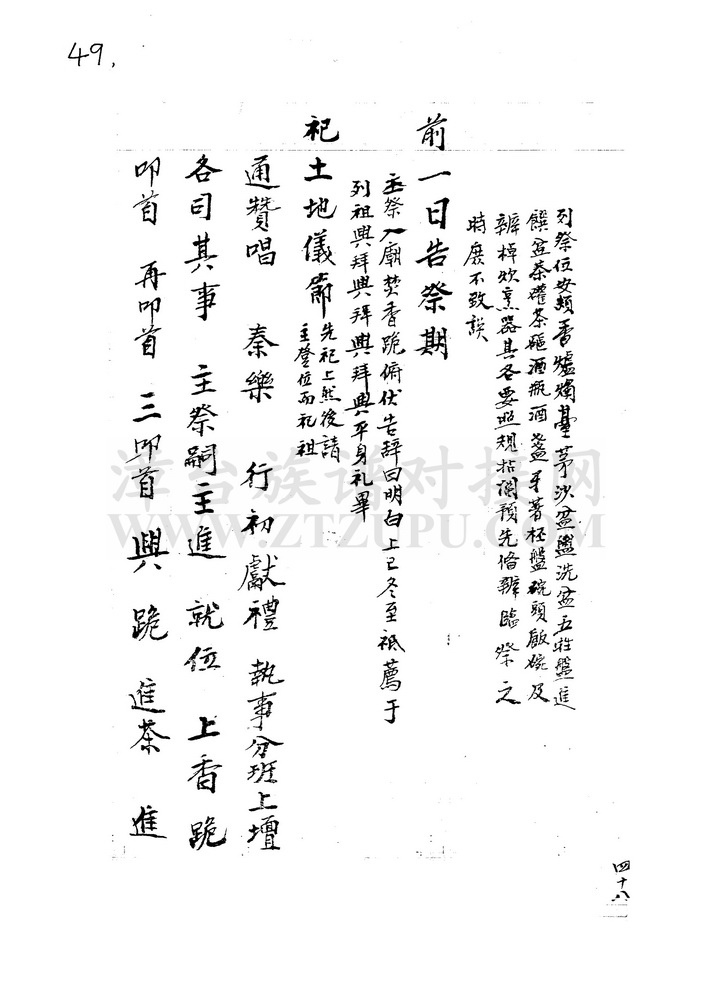 49.
列祭位安類香爐燭臺茅沙盆盥洗盆五牲盤進
饌盆茶礶茶甌酒瓶酒盞牙著杯盤碗頭飯碗及
辦棹炊烹器具各要照規拈鬮預先俻辦臨祭之
時庶不致誤
前一日告祭期
主祭入廟焚香跪俯伏告辞曰明白上巳冬至祗薦于
列祖興拜興拜興拜興平身礼畢
祀土地儀節 先祀土然後請
主登位而礼祖
通贊唱 奏樂 行初獻禮 執事分班上壇
各司其事 主祭嗣主進 就位 上香跪
叩首 再叩首 三叩首 興 跪 進茶 進
四十八
洋台族谱对接网
WWW.ZTZUPU.COM